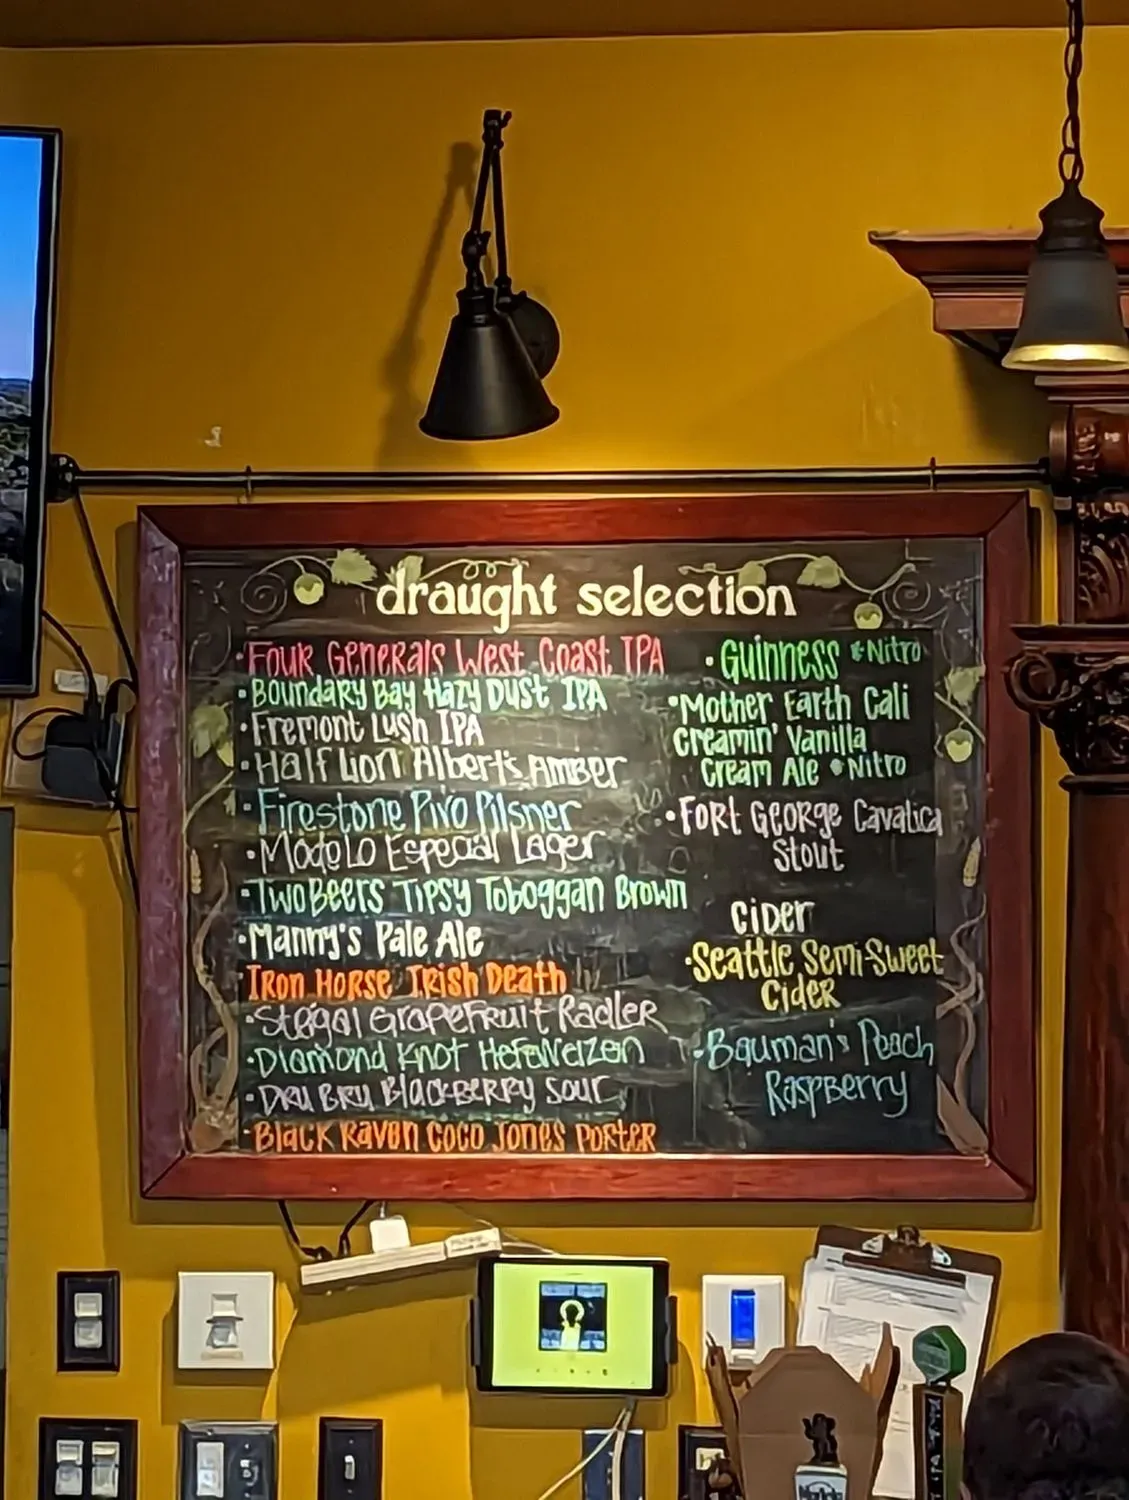 draught selection
• Four Generals West Coast IPA
• Boundary Bay Hazy Dust IPA
• Fremont Lush IPA
• Half Lion Albert's Amber
• Firestone Pivo Pilsner
• Modelo Especial Lager
• Two Beers Tipsy Toboggan Brown
• Manny's Pale Ale
Iron Horse Irish Death
• Steigal Grapefruit Radler
• Diamond Knot Hefeweizen
• Dru Bru Blackberry Sour
• Black Raven Coco Jones Porter
• Guinness * Nitro
• Mother Earth Cali
Creamin' Vanilla
Cream Ale • Nitro
• Fort George Cavatica
Stout
Cider
• Seattle Semi-Sweet
Cider
• Bauman's Peach
Raspberry